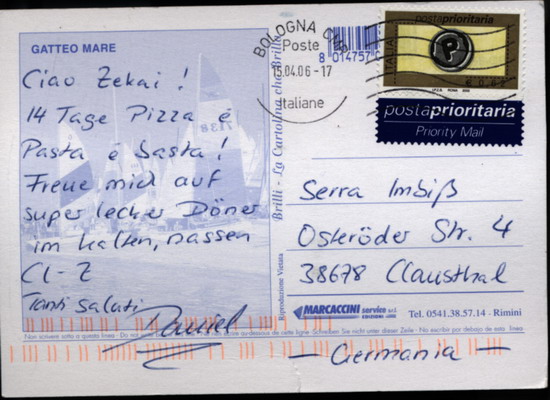 GATTEO MARE
Ciao Zekai!
14 Tage Pizza é
Pasta é basta!
Freue mich auf
super lecker Döner
im kalten, nassen
Cl-Z
Tanti saluti
Daniel
Brilli - La Cartolina che Brilla
Riproduzione Vietata
BOLOGNA
Poste
15.04.06-17
Italiane
8 014757
postaprioritaria
ITALIA
postaprioritaria
Priority Mail
Serra Imbiß
Osteröder Str. 4
38678 Clausthal
MARCACCINI service srl
Tel. 0541.38.57.14 - Rimini
Non scrivere sotto a questa linea
dessous de cette ligne Schreiben Sie nicht unter dieser Zeile - No escribir por debajo de esta línea
- Germania -